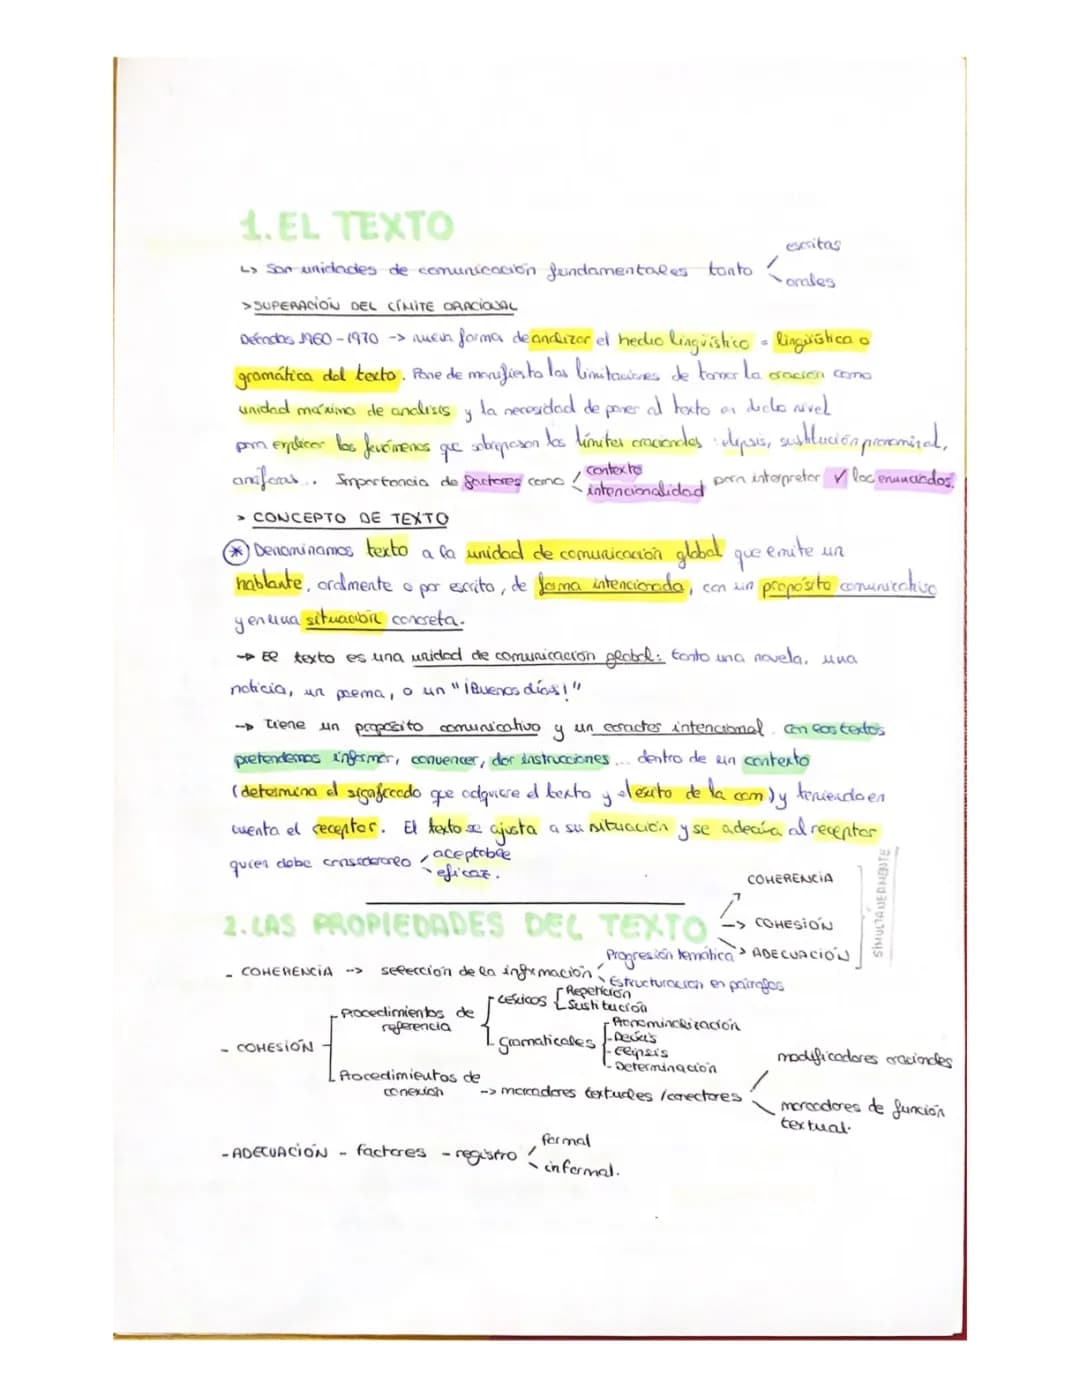 1. EL TEXTO
↳ Son unidades de comunicación fundamentales tanto escritas
orales
> SUPERACIÓN DEL LÍMITE ORACIONAL
Décadas 1960-1970 -> nueva forma de analizar el hecho lingüístico = lingüística o
gramática del texto. Pone de manifiesto las limitaciones de tomar la oración como
unidad máxima de analisis y la necesidad de poner al texto en dicho nivel
para explicar los fenómenos que sobrepasan los límites oracionales: elipsis, sustitución pronominal,
anáforas... Importancia de factores como contexto
intencionalidad para interpretar ✓ los enunciados.
> CONCEPTO DE TEXTO
* Denominamos texto a la unidad de comunicación global que emite un
hablante, oralmente o por escrito, de forma intencionada, con un propósito comunicativo
y en una situación concreta.
-> El texto es una unidad de comunicación global: tanto una novela, una
noticia, un poema, o un "¡Buenos días!"
-> Tiene un proposito comunicativo y un caracter intencional. Con los textos
pretendemos informar, convencer, dar instrucciones... dentro de un contexto
(determina el significado que adquiere el texto y el exito de la com) y teniendo en
cuenta el receptor. El texto se ajusta a su situación y se adecúa al receptor
quien debe considerarlo aceptable
eficaz.
2. LAS PROPIEDADES DEL TEXTO
-> COHERENCIA
-> COHESIÓN
-> ADECUACIÓN
SIMULTÁNEAMENTE
- COHERENCIA --> selección de la información Progresión temática
Estructuración en párrafos
- COHESIÓN
Procedimientos de
referencia
Léxicos
Repetición
Sustitución
Gramaticales
- Pronominalización
- Deixis
- Elipsis
- Determinación
Procedimientos de
conexión -> marcadores textuales / conectores
modificadores oracionales
marcadores de función
textual.
- ADECUACIÓN - factores - registro formal
informal.